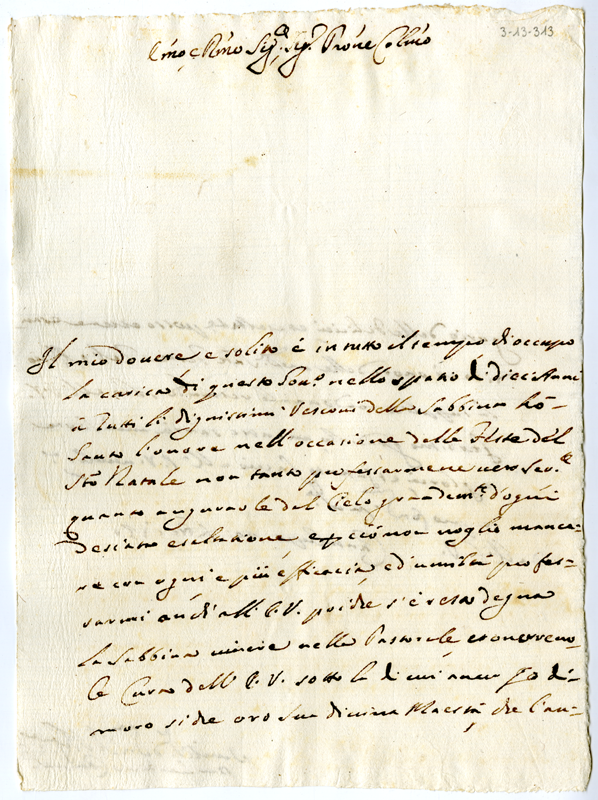 3-13-313
Emo, e Rmo Sig.r Sig.r Prone Colmo
Il mio dovere e solito è in tutto il tempo di occupo
la carica di questo Gov.o nello spatio di dieci Anni
à tutti li dignissimi Vescovi della Sabbina hò
hauto l'onore nell'occasione delle Feste del
Sto Natale non tanto professarmene vero Ser.e
quanto augurarle dal Cielo grandem.te d'ogni
desiata esaltatione e p ciò non voglio manca-
re con ogni e più efficacia, ed umiltà profes-
sarmi anch'all'E.V. poiche s'è resa degna
la Sabbina vivere nella Pastorale, et onorevo-
le Cura dell'E.V. sotto la di cui anch'Jo di-
moro si che oro Sua divina Maestà, che l'au-